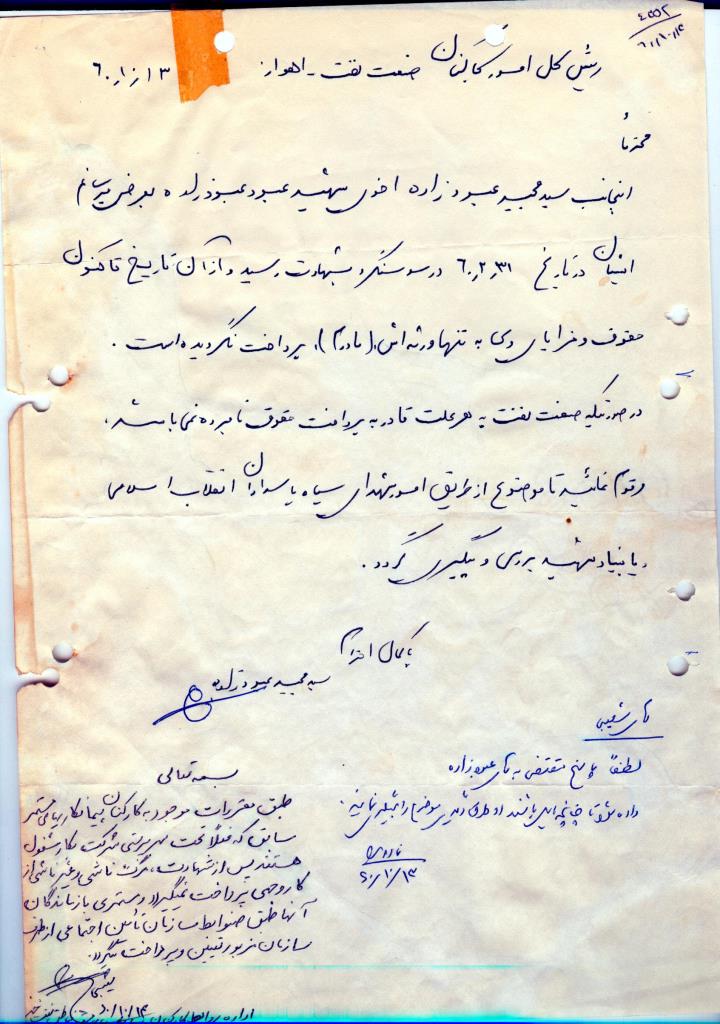 ۴۵۵۲
۶۰/۱۰/۱۴
رئیس کل امور کارکنان صنعت نفت - اهواز ۶۰/۱۰/۱۳
محترماً
اینجانب سید مجید عبودزاده اخوی شهید عبود عبودزاده بعرض میرسانم
ایشان در تاریخ ۶۰/۲/۳۱ در سوسنگرد بشهادت رسید و از آن تاریخ تاکنون
حقوق و مزایای وی به تنها ورثه اش (مادرم)، پرداخت نگردیده است.
در صورتیکه صنعت نفت به هر علت قادر به پرداخت حقوق نامبرده نمی باشد،
مرقوم نمائید تا موضوع از طریق امور شهدای سپاه پاسداران انقلاب اسلامی
و یا بنیاد شهید بررسی و پیگیری گردد.
با کمال احترام
سید مجید عبودزاده
آقای شعیبی
لطفاً پاسخ مقتضی به آقای عبودزاده
داده شود تا چنانچه مایل باشند از طرق دیگری موضوع را پیگیری نمایند.
۶۰/۱۰/۱۳
بسمه تعالی
طبق مقررات موجود به کارکنان پیمانکاریهای مستمر
سابق که فعلاً تحت سرپرستی شرکت بکار مشغول
هستند پس از شهادت، فوت ناشی و غیر ناشی از
کار وجهی پرداخت نمیگردد و مستمری بازماندگان
آنها طبق ضوابط سازمان تأمین اجتماعی از طرف
سازمان مزبور تعیین و پرداخت میگردد.
۶۰/۱۰/۱۴
اداره روابط کار